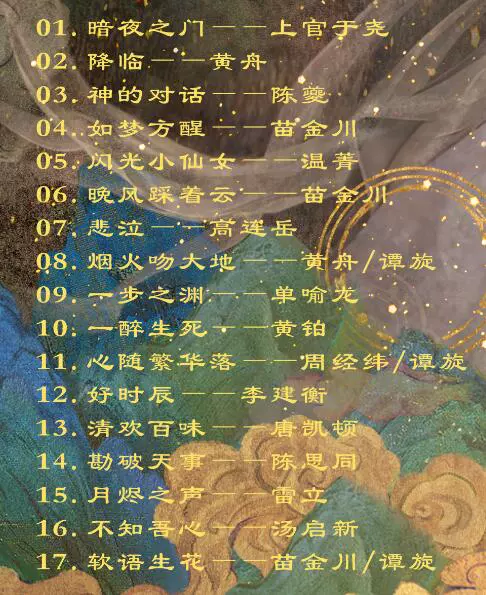 01. 暗夜之门——上官于尧
02. 降临——黄舟
03. 神的对话——陈夔
04. 如梦方醒——苗金川
05. 闪光小仙女——温菁
06. 晚风踩着云——苗金川
07. 悲泣——高连岳
08. 烟火吻大地——黄舟/谭旋
09. 一步之渊——单喻龙
10. 一醉生死——黄铂
11. 心随繁华落——周经纬/谭旋
12. 好时辰——李建衡
13. 清欢百味——唐凯顿
14. 勘破天事——陈思同
15. 月烬之声——雷立
16. 不知吾心——汤启新
17. 软语生花——苗金川/谭旋